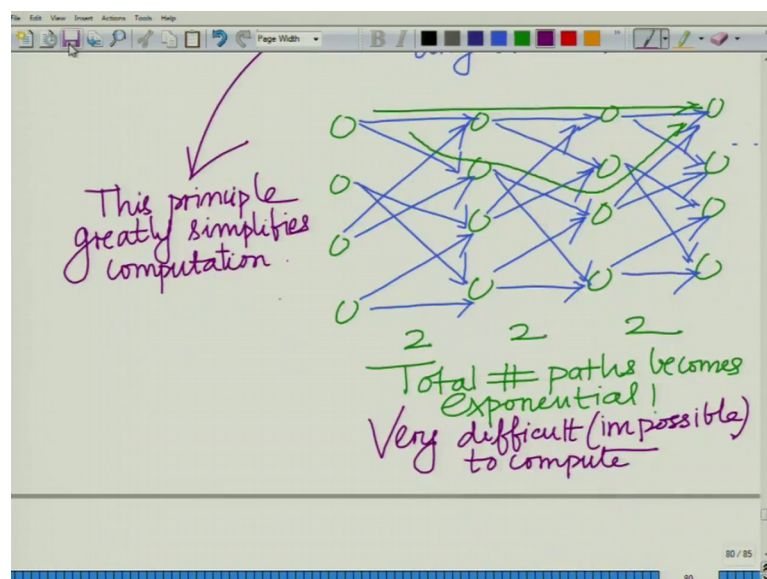 File Edit View Insert Actions Tools Help
Page Width
B I
This principle
greatly simplifies
computation.
2 2 2
Total # paths becomes
exponential!
Very difficult (impossible)
to compute
80 / 85
80